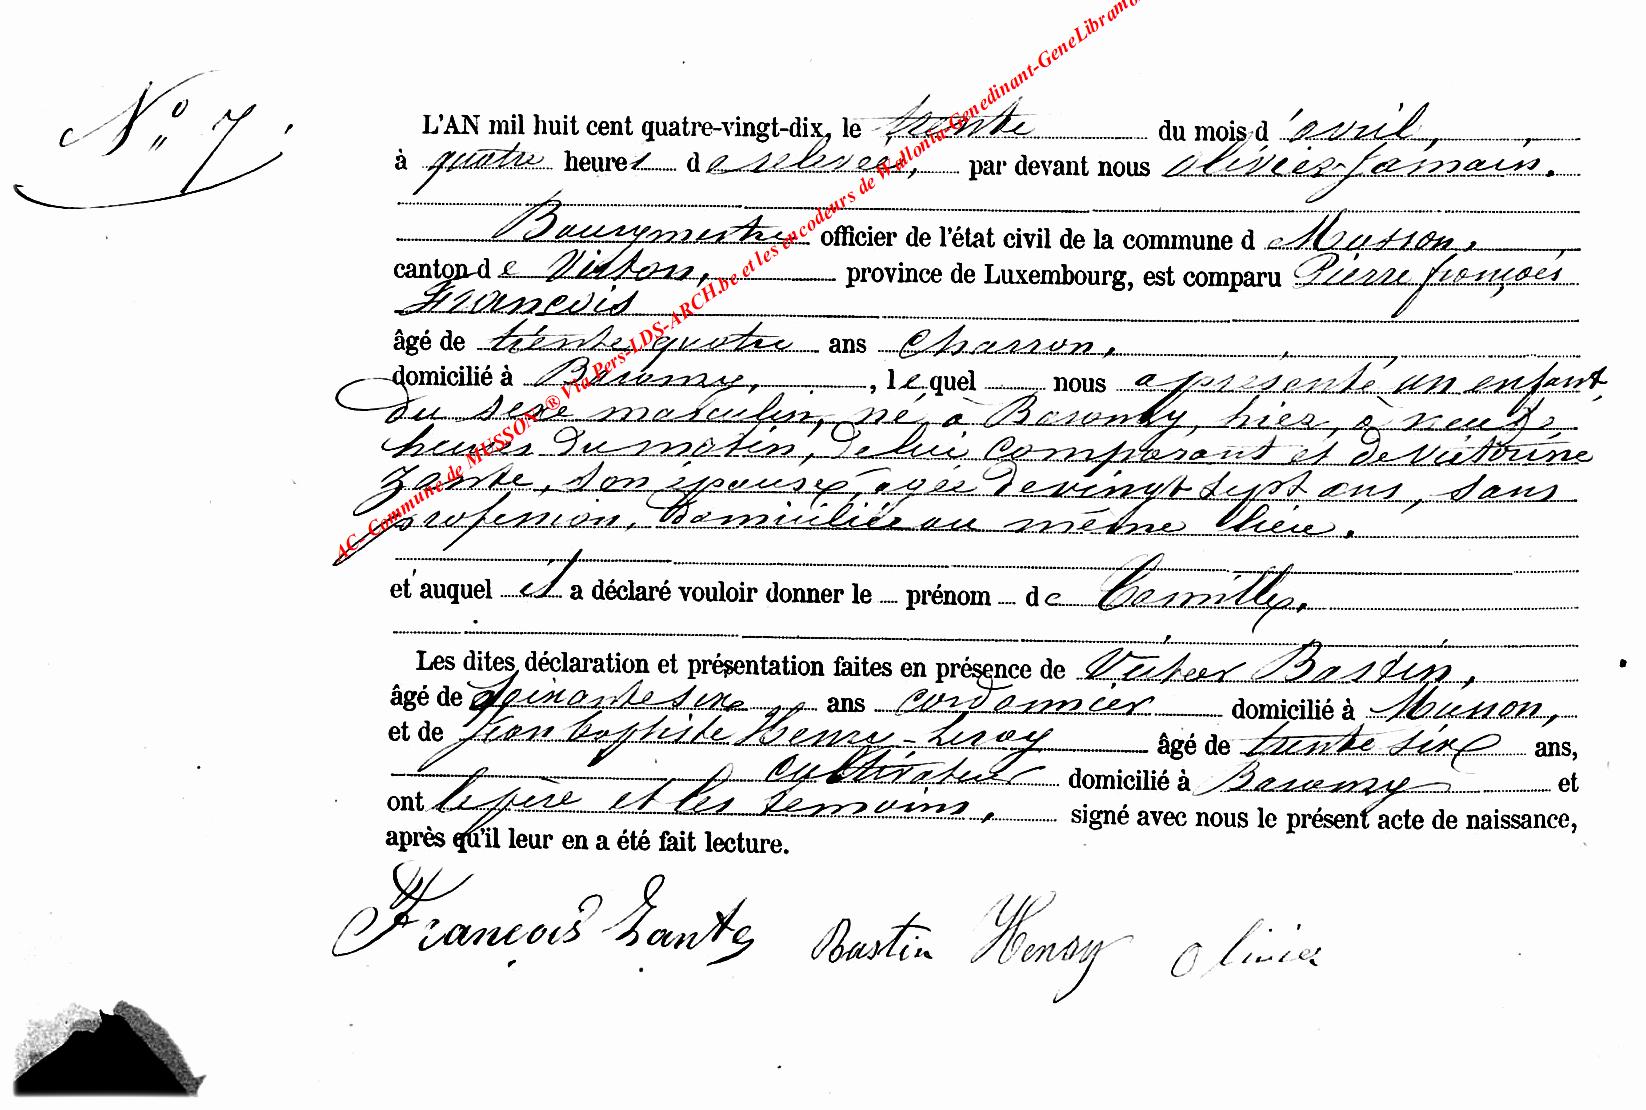 N° 7.
L'AN mil huit cent quatre-vingt-dix, le trente du mois d'avril,
à quatre heures de relevée, par devant nous Olivier-Jamain.
Bourgmestre officier de l'état civil de la commune de Musson,
canton de Virton, province de Luxembourg, est comparu Pierre françois
François
âgé de trente quatre ans Charron,
domicilié à Baranzy, , lequel nous a présenté un enfant
du sexe masculin, né, à Baranzy, hier, à neuf
heures du matin, de lui comparant et de Victorine
Zante, son épouse, agée de vingt sept ans, sans
profession, domiciliée au même lieu.
et auquel il a déclaré vouloir donner le prénom de Camille,
Les dites déclaration et présentation faites en présence de Victor Bastin,
âgé de ans cordonnier domicilié à Musson,
et de Jean baptiste Henry-Leroy âgé de trente six ans,
cultivateur domicilié à Baranzy et
ont le père et les témoins, signé avec nous le présent acte de naissance,
après qu'il leur en a été fait lecture.
François Zante Bastin Henry Olivier
AC-Commune de MUSSON ® Via Pers-LDS-ARCH.be et les encodeurs de Wallonia-Genedinant-GeneLibramo